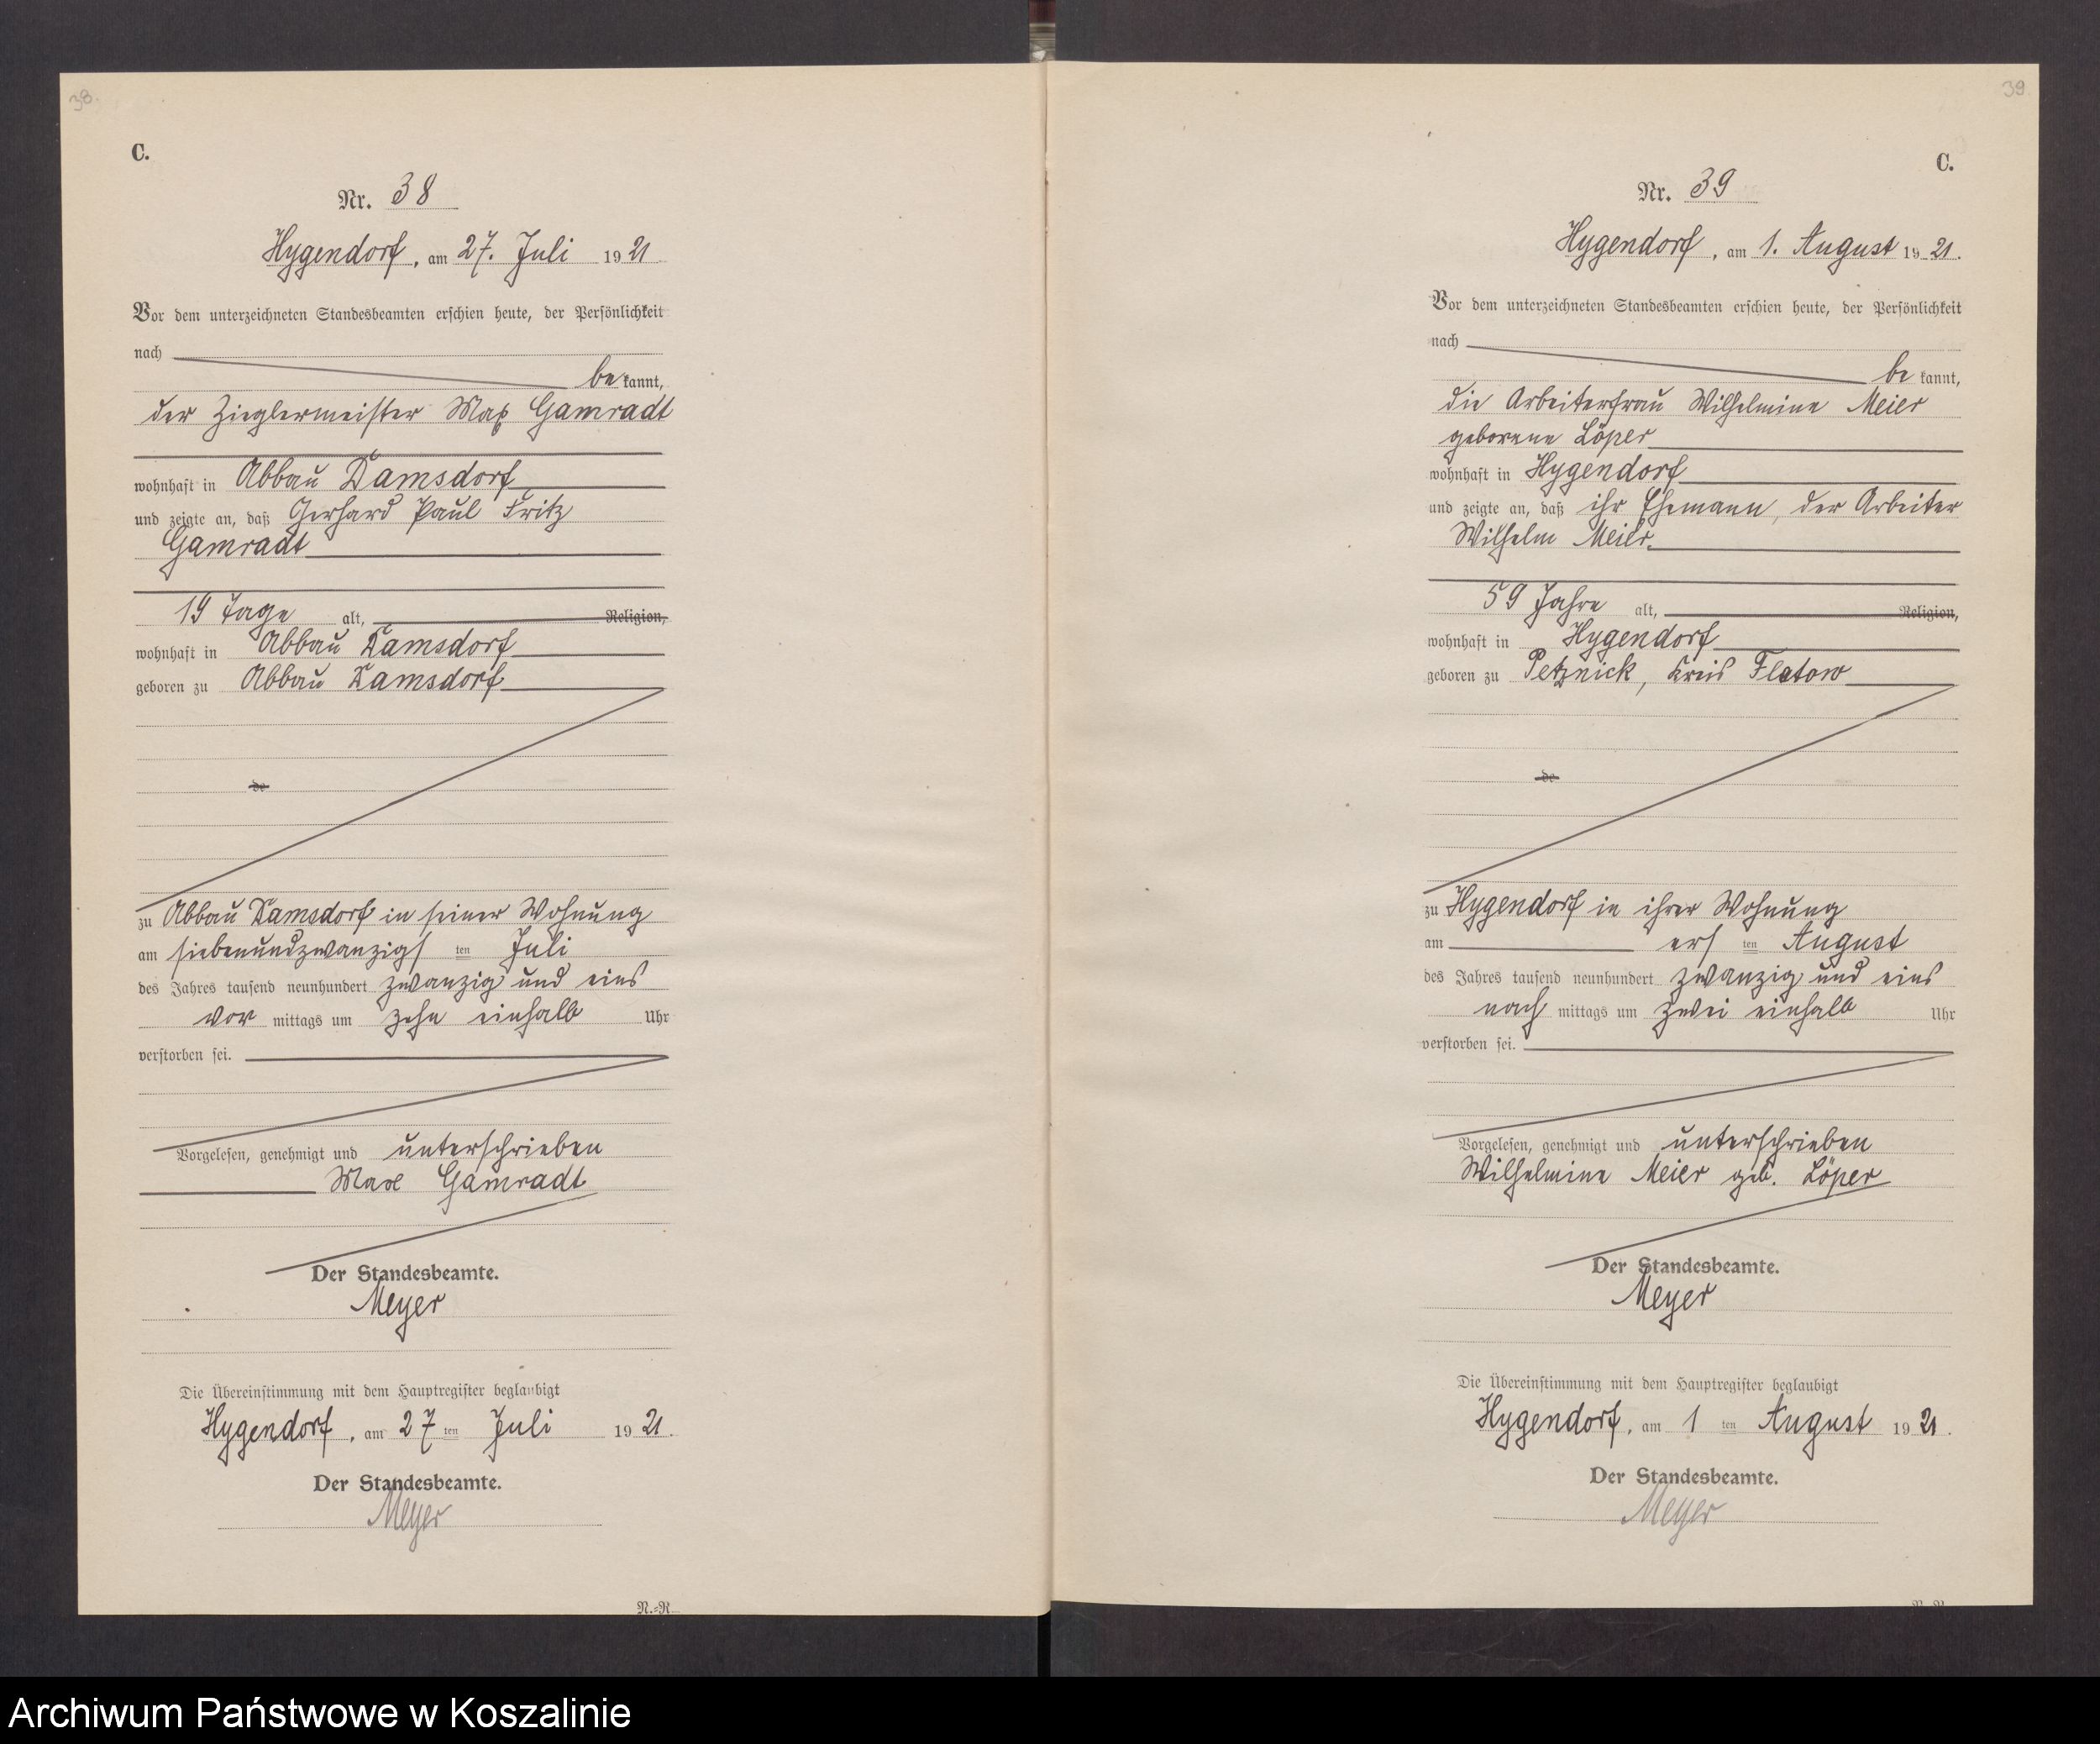 38.
C.
Nr. 38
Hygendorf, am 27. Juli 1921
Vor dem unterzeichneten Standesbeamten erschien heute, der Persönlichkeit
nach
bekannt,
der Zieglermeister Max Gamradt
wohnhaft in Abbau Damsdorf
und zeigte an, daß Gerhard Paul Fritz
Gamradt
19 Tage alt, Religion,
wohnhaft in Abbau Damsdorf
geboren zu Abbau Damsdorf
de
zu Abbau Damsdorf in seiner Wohnung
am siebenundzwanzigsten Juli
des Jahres tausend neunhundert zwanzig und eins
vormittags um zehn einhalb Uhr
verstorben sei.
Vorgelesen, genehmigt und unterschrieben
Max Gamradt
Der Standesbeamte.
Meyer
Die Übereinstimmung mit dem Hauptregister beglaubigt
Hygendorf, am 27ten Juli 1921.
Der Standesbeamte.
Meyer
N.-R.
39
C.
Nr. 39
Hygendorf, am 1. August 1921.
Vor dem unterzeichneten Standesbeamten erschien heute, der Persönlichkeit
nach
bekannt,
die Arbeiterfrau Wilhelmine Meier
geborene Löper
wohnhaft in Hygendorf
und zeigte an, daß ihr Ehemann, der Arbeiter
Wilhelm Meier,
59 Jahre alt, Religion,
wohnhaft in Hygendorf
geboren zu Petznick, Kreis Flatow
de
zu Hygendorf in ihrer Wohnung
am ersten August
des Jahres tausend neunhundert zwanzig und eins
nachmittags um zwei einhalb Uhr
verstorben sei.
Vorgelesen, genehmigt und unterschrieben
Wilhelmine Meier geb. Löper
Der Standesbeamte.
Meyer
Die Übereinstimmung mit dem Hauptregister beglaubigt
Hygendorf, am 1ten August 1921.
Der Standesbeamte.
Meyer
Archiwum Państwowe w Koszalinie